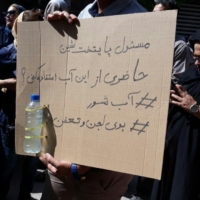 مسئول پایتخت نشین
حاضری از این آب استفاده کنی؟
# آب شور
# بوی لجن و تعفن